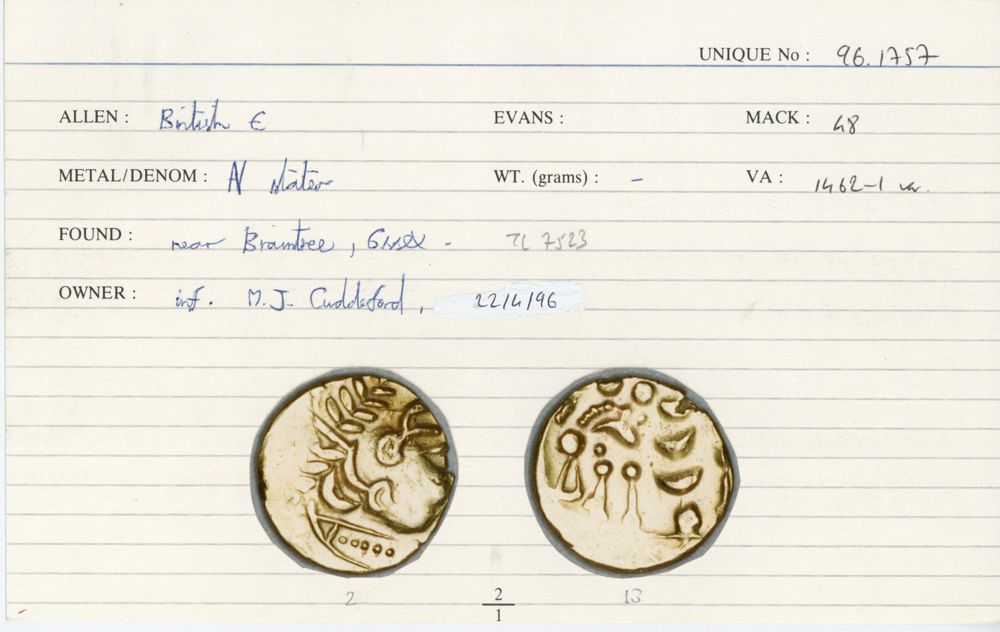 UNIQUE No : 96.1757
ALLEN : British E EVANS : MACK : 48
METAL/DENOM : N stater WT. (grams) : – VA : 1462-1 var.
FOUND : near Braintree, Essex - TL 7523
OWNER : inf. M.J. Cuddeford, 22/4/96
2 2/1 13